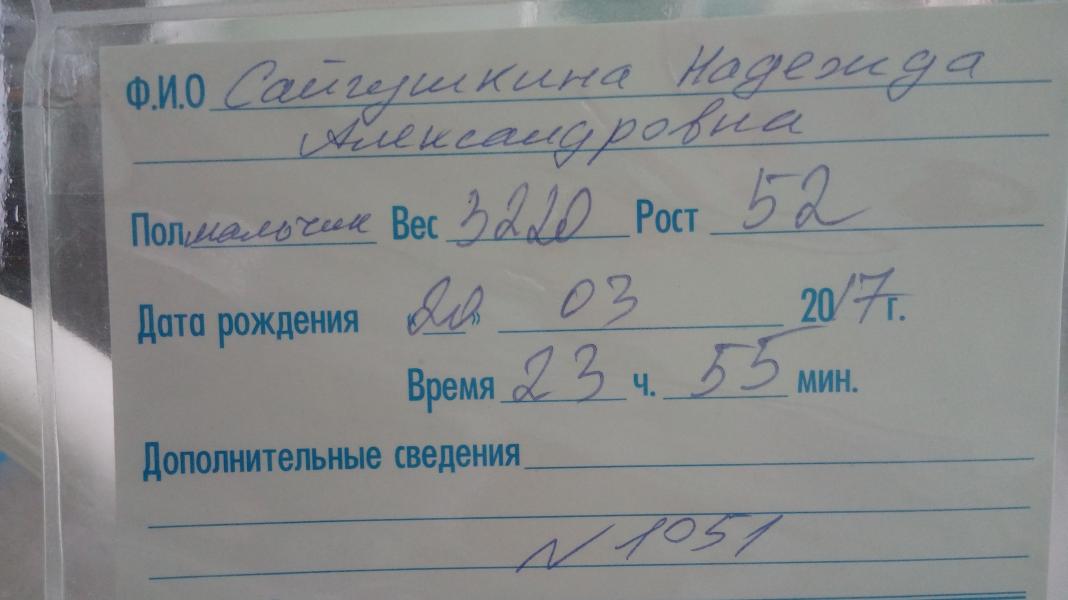 Ф.И.О Сайгушкина Надежда
Александровна
Пол мальчик Вес 3220 Рост 52
Дата рождения "20" 03 2017 г.
Время 23 ч. 55 мин.
Дополнительные сведения
N 1051